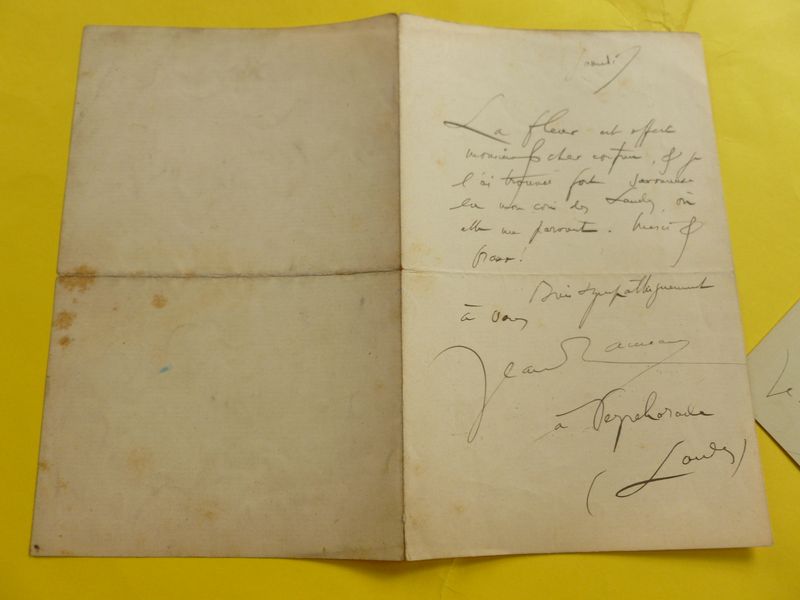 Samedi
La fleur est offerte
monsieur & cher confrère, & je
l'ai trouvée fort savoureuse
en mon coin des Landes, où
elle me parvint. Merci &
bravo!
Bien sympathiquement
à vous
Jean Rameau
à Peyrehorade
(Landes)
Le